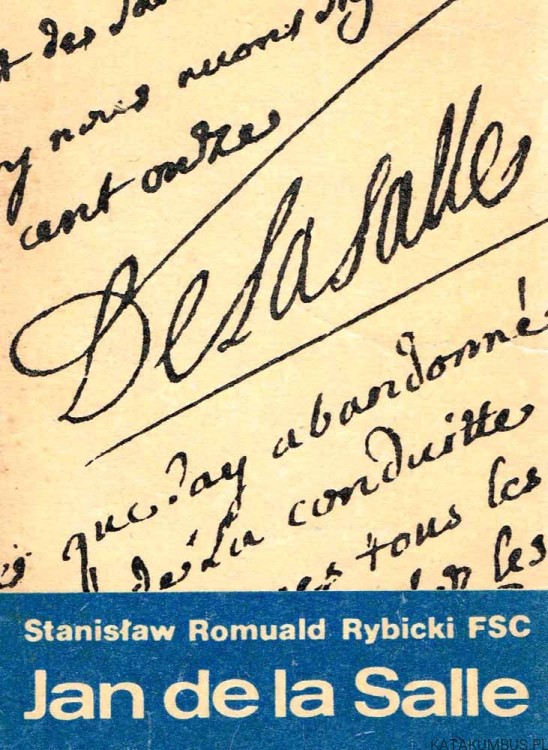 t des
y nous avons
cent onze
De La Salle
abandonné
que J'ay
conduitte
de La
tous les
les
Stanisław Romuald Rybicki FSC
Jan de la Salle
KATAKUMBUS.PL